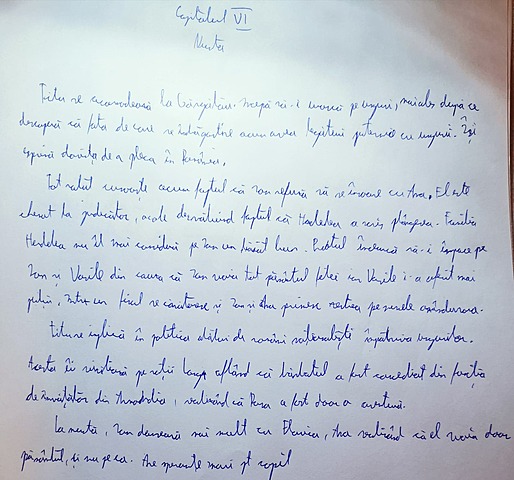 Capitolul VI
Nunta
Titu se acomodează la Gargalău. Începă să-i urască pe unguri, mai ales după ce
descoperă că fata de care se îndrăgostise acum avea legături puternice cu ungurii. Își
exprimă dorința de a pleca în România.
Tot satul cunoaște acum faptul că Ion refuză să se însoare cu Ana. El este
chemat la judecător, acolo dezvăluind faptul că Herdelea a scris plângerea. Familia
Herdelea nu îl mai consideră pe Ion un băiat bun. Preotul încearcă să-i împace pe
Ion și Vasile din cauza că Ion voia tot pământul fetei iar Vasile i-a oferit mai
puțin. Într-un final se căsătoresc și Ion și Ana primesc vestea pe numele amândurora.
Titu se implică în politica alături de români naționaliști împotriva ungurilor.
Acesta îi vizitează pe soții Lang aflând că bărbatul a fost concediat din funcția
de învățător din , realizând că Roza a fost doar o aventură.
La nuntă, Ion dansează mai mult cu Florica, Ana realizând că el voia doar
pământul, și nu pe ea. Are speranțe mari pt copil